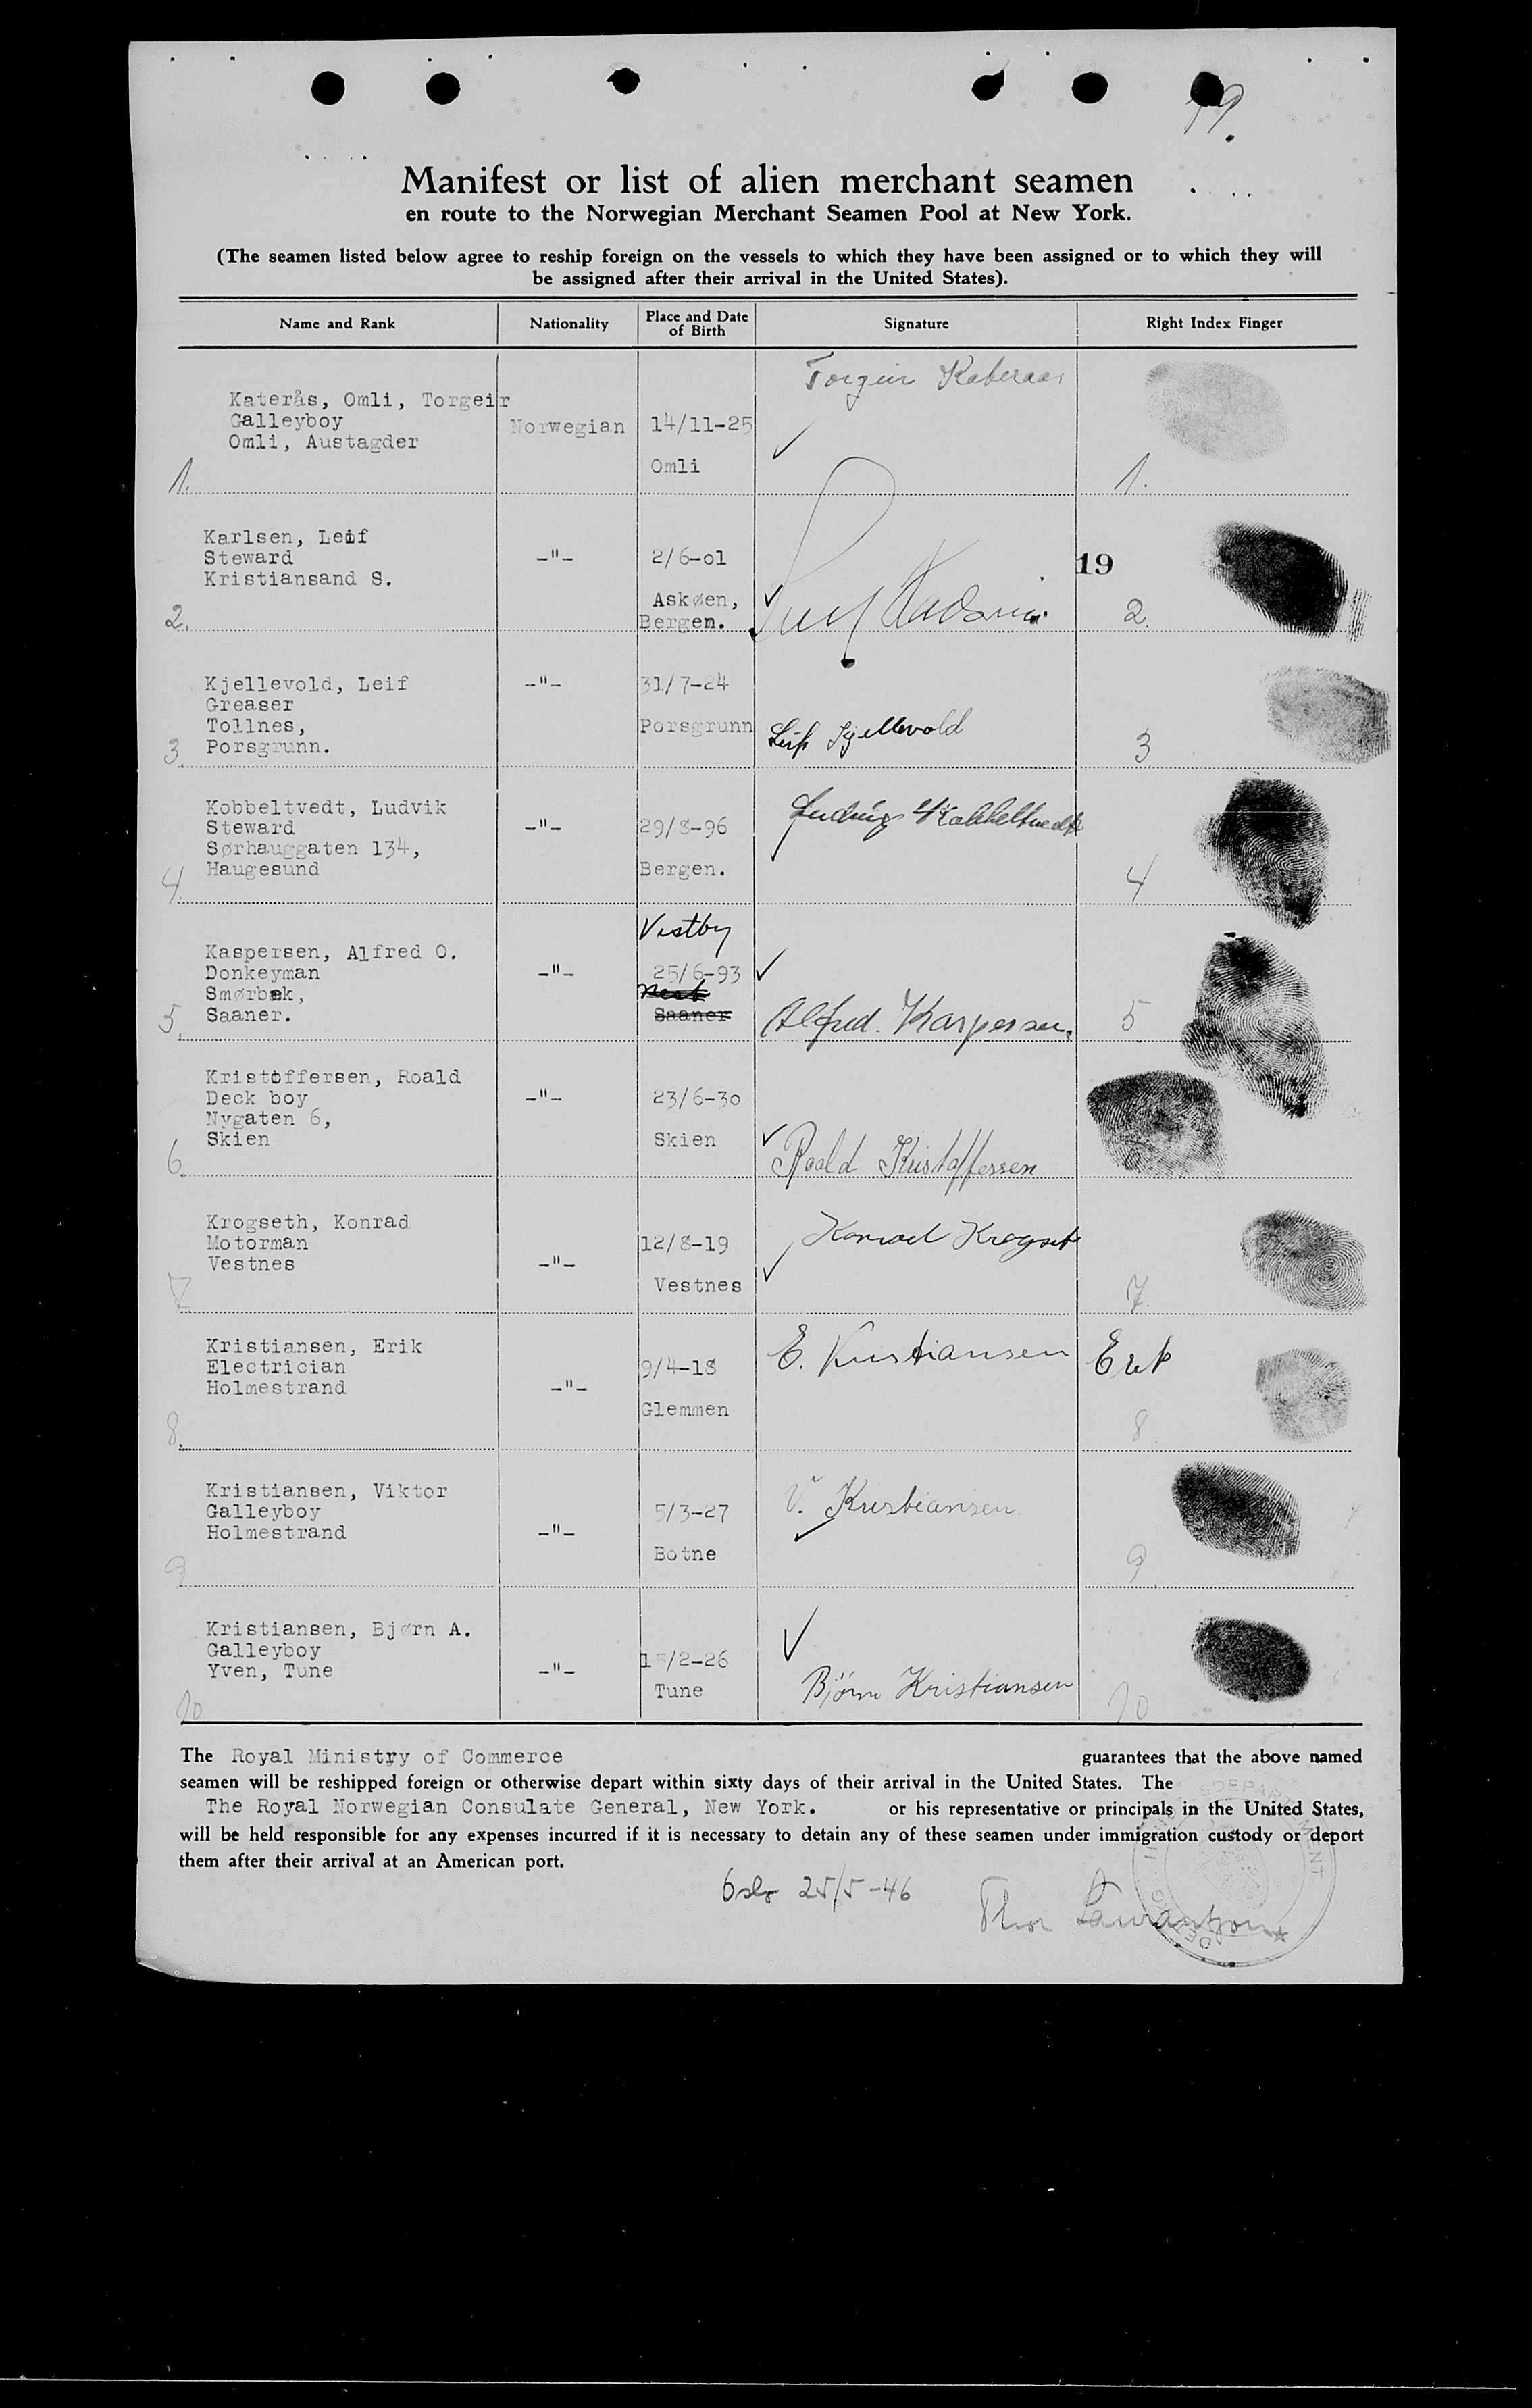 19.
Manifest or list of alien merchant seamen
en route to the Norwegian Merchant Seamen Pool at New York.
(The seamen listed below agree to reship foreign on the vessels to which they have been assigned or to which they will
be assigned after their arrival in the United States).
Name and Rank Nationality Place and Date of Birth Signature Right Index Finger
Torgeir Kateraas
Katerås, Omli, Torgeir
Galleyboy Norwegian 14/11-25
Omli, Austagder
Omli
1. 1.
Karlsen, Leif
Steward -"- 2/6-01 19
Kristiansand S.
Askøen,
2. Bergen. 2.
Kjellevold, Leif -"- 31/7-24
Greaser
Tollnes, Porsgrunn Leif Kjellevold
3. Porsgrunn. 3
Kobbeltvedt, Ludvik Ludvig Kobbeltvedt
Steward -"- 29/8-96
Sørhauggaten 134,
4. Haugesund Bergen. 4
Vestby
Kaspersen, Alfred O.
Donkeyman -"- 25/6-93
Smørbæk,
5. Saaner. Saaner Alfred. Kaspersen. 5
Kristoffersen, Roald
Deck boy -"- 23/6-30
Nygaten 6,
Skien Skien
6. Roald Kristoffersen 6
Krogseth, Konrad Konrad Krogset
Motorman 12/8-19
Vestnes -"- Vestnes
7. 7.
Kristiansen, Erik E. Kristiansen Erik
Electrician 9/4-18
Holmestrand -"-
Glemmen
8. 8.
Kristiansen, Viktor V. Kristiansen
Galleyboy 5/3-27
Holmestrand -"-
Botne
9. 9.
Kristiansen, Bjørn A.
Galleyboy 15/2-26
Yven, Tune -"- Tune Bjørn Kristiansen
10 10
The Royal Ministry of Commerce guarantees that the above named
seamen will be reshipped foreign or otherwise depart within sixty days of their arrival in the United States. The
The Royal Norwegian Consulate General, New York. or his representative or principals in the United States,
will be held responsible for any expenses incurred if it is necessary to detain any of these seamen under immigration custody or deport
them after their arrival at an American port.
Oslo 25/5-46 Thor